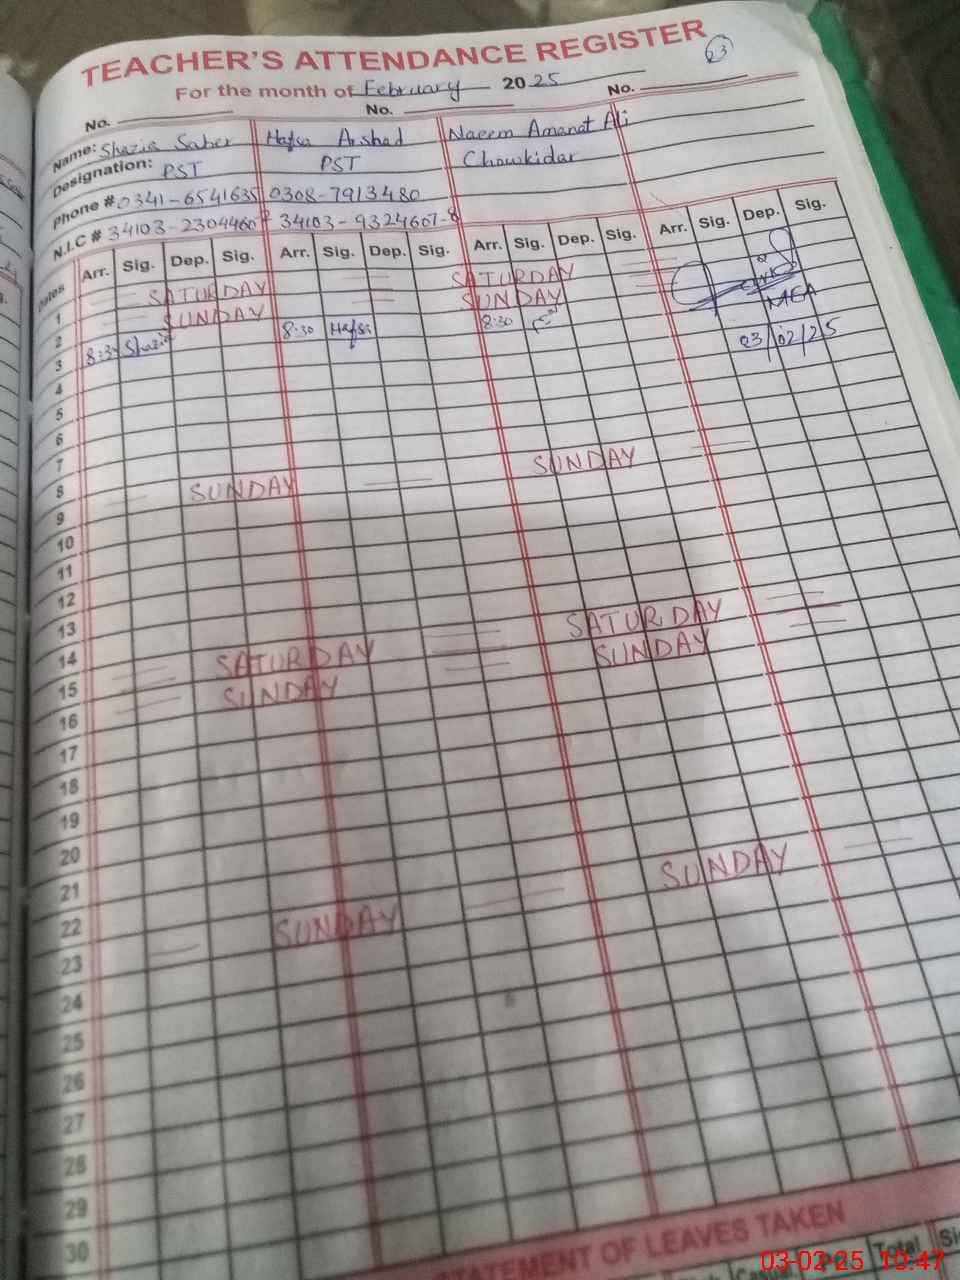 23
TEACHER'S ATTENDANCE REGISTER
For the month of February 2025
No. No. No.
Name: Shazia Saber Hafsa Arshad Naeem Amanat Ali
Designation: PST PST Chowkidar
Phone # 0341-6541635 0308-7913480
N.I.C # 34103-2304460 34103-9324607-8
Dates Arr. Sig. Dep. Sig. Arr. Sig. Dep. Sig. Arr. Sig. Dep. Sig. Arr. Sig. Dep. Sig.
1 SATURDAY SATURDAY
2 SUNDAY SUNDAY MEA
3 8:30 Shazia 8:30 Hafsa 8:30 03/02/25
4
5
6
7
8
SUNDAY SUNDAY
9
10
11
12
13
14
SATURDAY SATURDAY
15
SUNDAY SUNDAY
16
17
18
19
20
21
22
SUNDAY SUNDAY
23
24
25
26
27
28
29
30
OF LEAVES TAKEN
Total
03-02-25 10:47